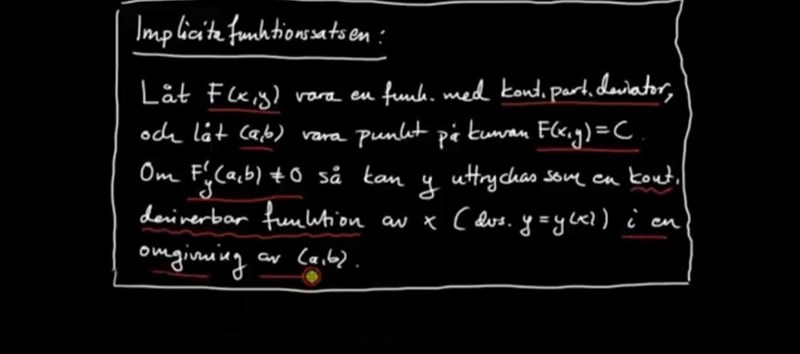 Implicita funktionssatsen:
Låt F(x,y) vara en funk. med kont. part. derivator,
och låt (a,b) vara punkt på kurvan F(x,y) = C.
Om F'y(a,b) ≠ 0 så kan y uttryckas som en kont.
deriverbar funktion av x (dvs. y=y(x)) i en
omgivning av (a,b).